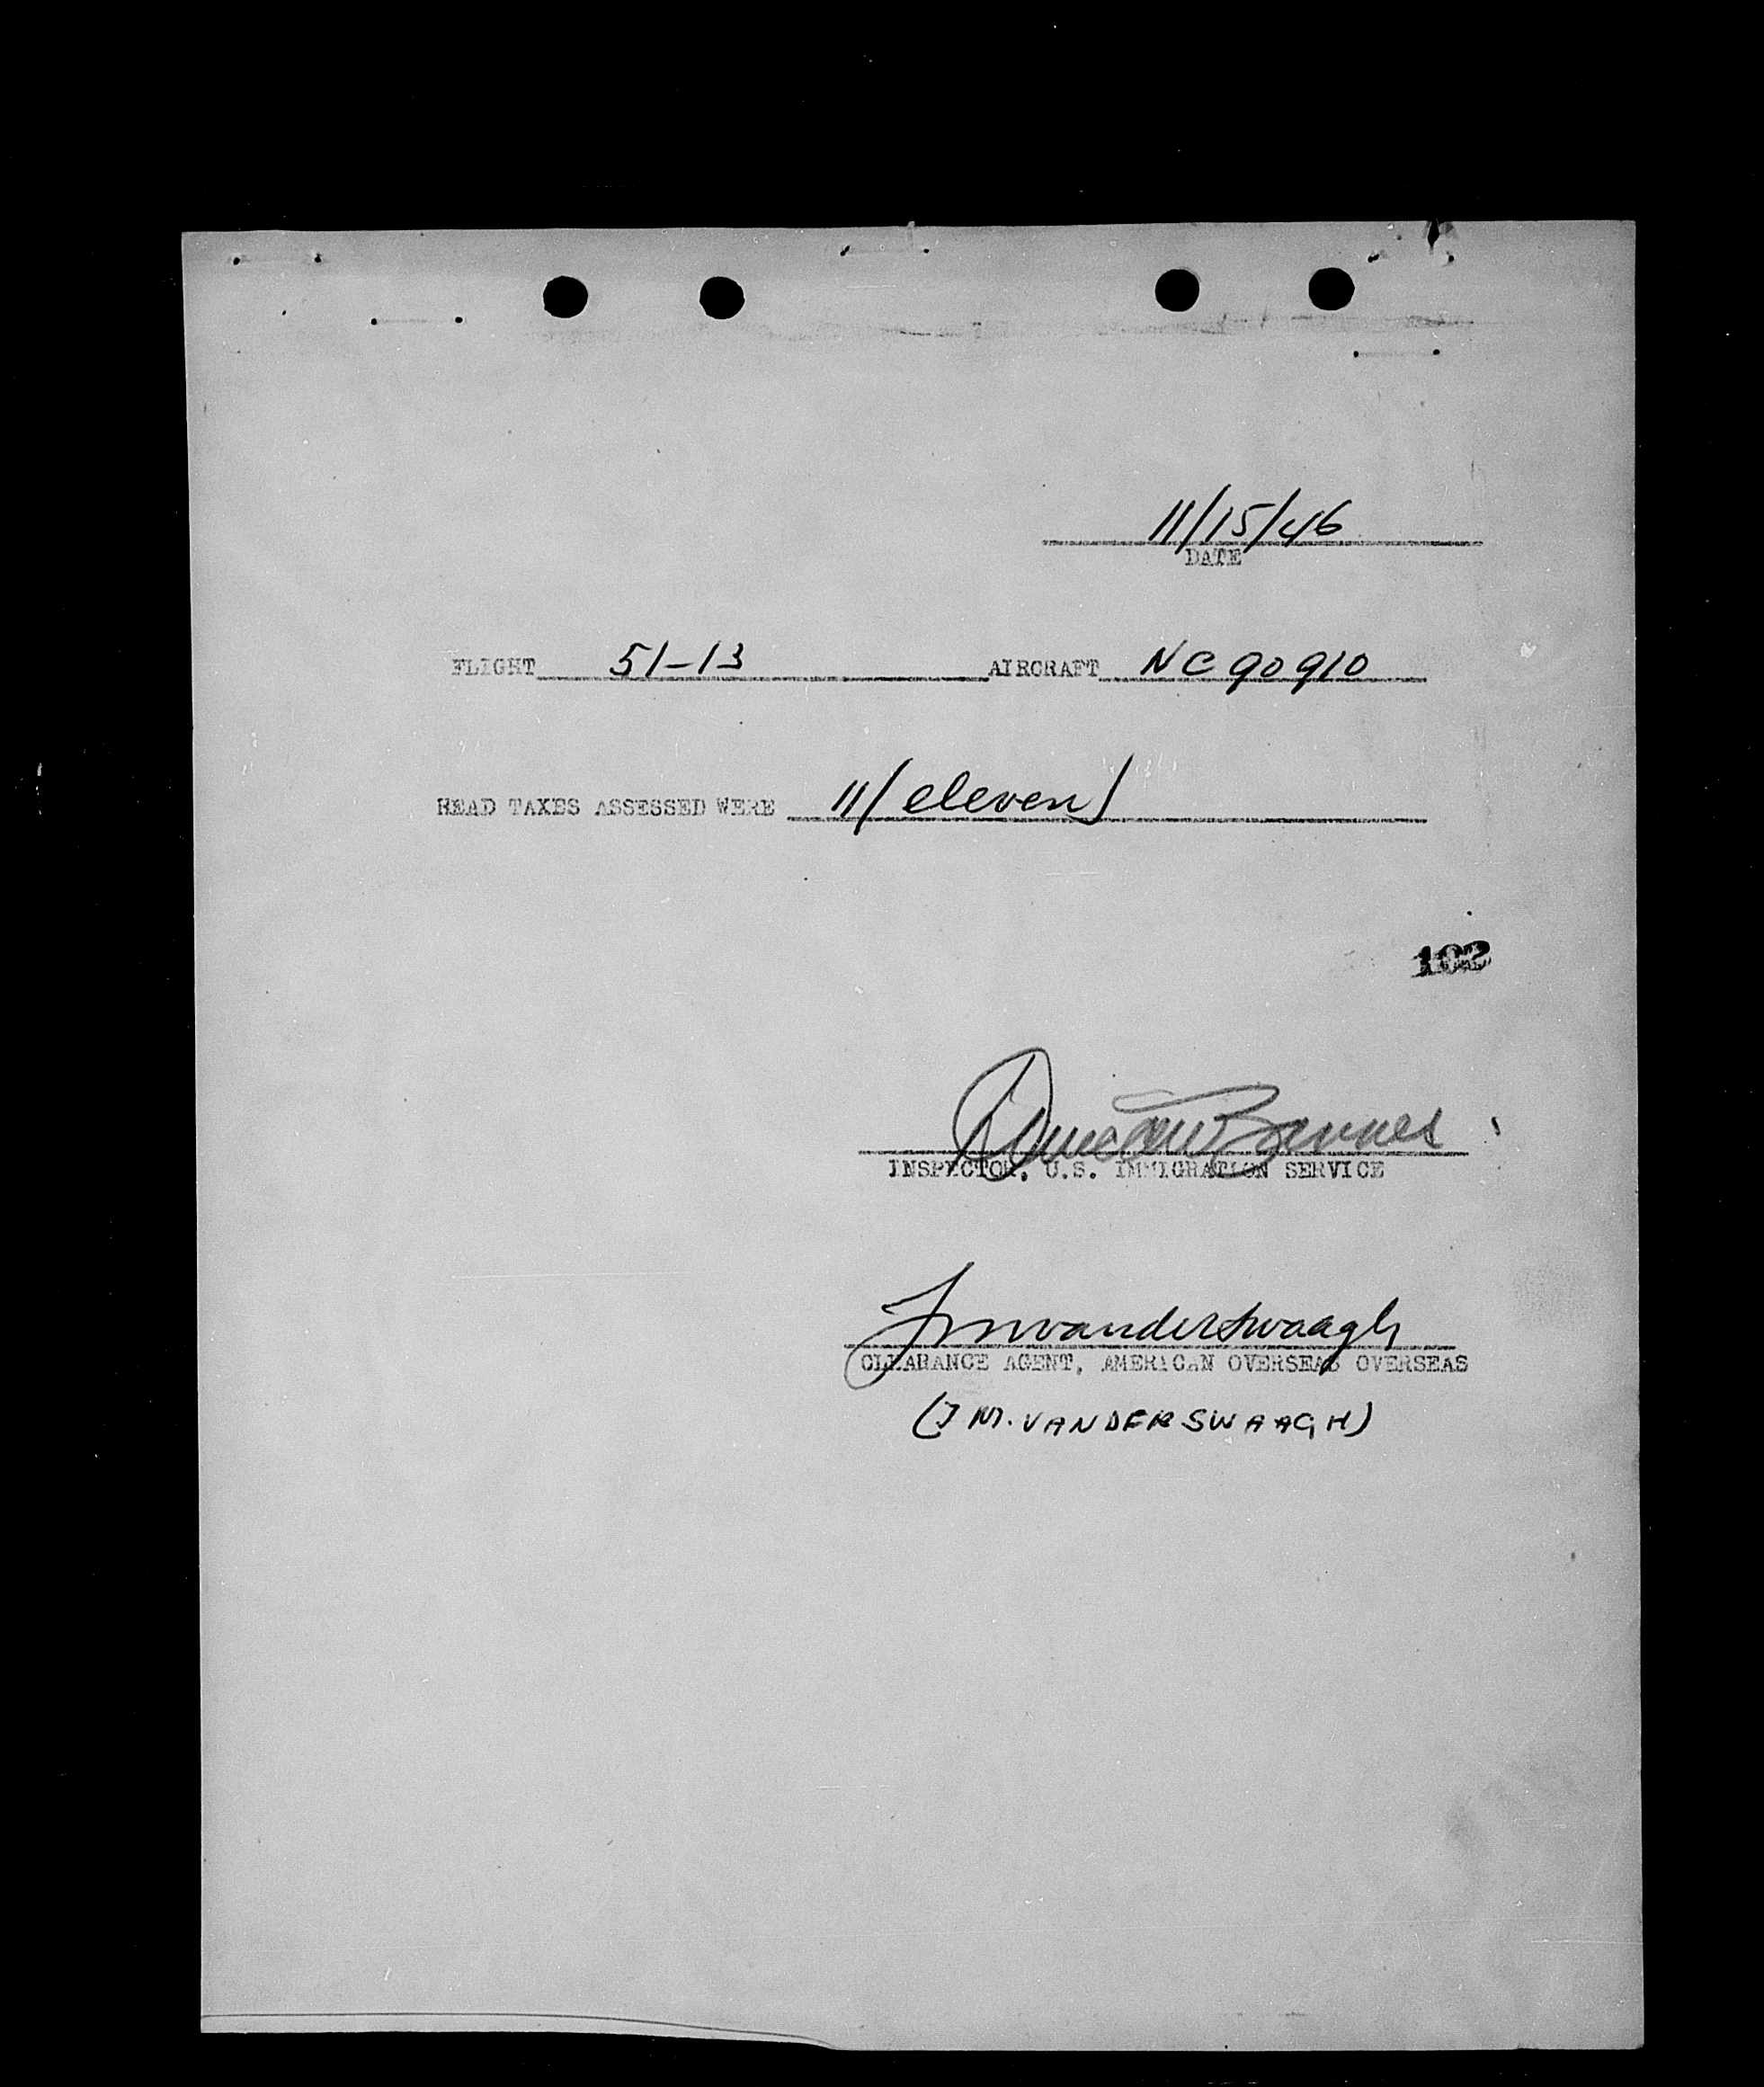 11/15/46
DATE
FLIGHT 51-13 AIRCRAFT NC 90910
HEAD TAXES ASSESSED WERE 11 (eleven)
102
Duncan Barnes
INSPECTOR, U.S. IMMIGRATION SERVICE
JM vanderswaagh
CLEARANCE AGENT, AMERICAN OVERSEAS OVERSEAS
(J M. VANDERSWAAGH)